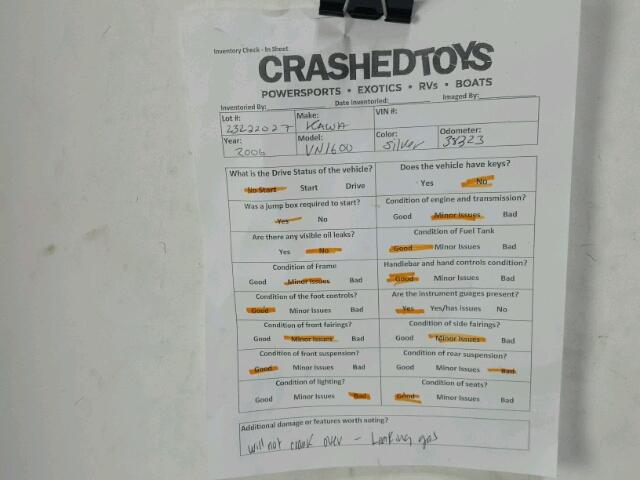 Inventory Check - In Sheet
CRASHEDTOYS
POWERSPORTS • EXOTICS • RVs • BOATS
Inventoried By: Date Inventoried: Imaged By:
Lot #: Make: VIN #:
23222027 KAWA
Year: Model: Color: Odometer:
2006 VN1600 Silver 38323
What is the Drive Status of the vehicle? Does the vehicle have keys?
No Start Start Drive Yes No
Was a jump box required to start? Condition of engine and transmission?
Yes No Good Minor Issues Bad
Are there any visible oil leaks? Condition of Fuel Tank
Yes No Good Minor Issues Bad
Condition of Frame Handlebar and hand controls condition?
Good Minor Issues Bad Good Minor Issues Bad
Condition of the foot controls? Are the instrument guages present?
Good Minor Issues Bad Yes Yes/has issues No
Condition of front fairings? Condition of side fairings?
Good Minor Issues Bad Good Minor Issues Bad
Condition of front suspension? Condition of rear suspension?
Good Minor Issues Bad Good Minor Issues Bad
Condition of lighting? Condition of seats?
Good Minor Issues Bad Good Minor Issues Bad
Additional damage or features worth noting?
will not crank over - Leaking gas